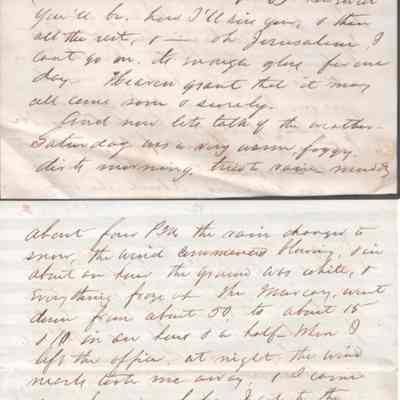 You'll be, how I'll sing you, & then
all the rest, & — oh Jerusalem, I
cant go on. its enough glee for one
day. Heaven grant that it may
all come soon & surely.
And now lets talk of the weather.
Saturday was a very warm, foggy,
dirty morning, rain muddy
about four P.M. the rain changed to
snow, the wind commenced blowing, & in
about an hour the ground was white, &
Everything froze up. The Mercury went
down from about 50 to about 15
in an hour & a half. When I
left the office, at night, the wind
nearly took me away, & I came